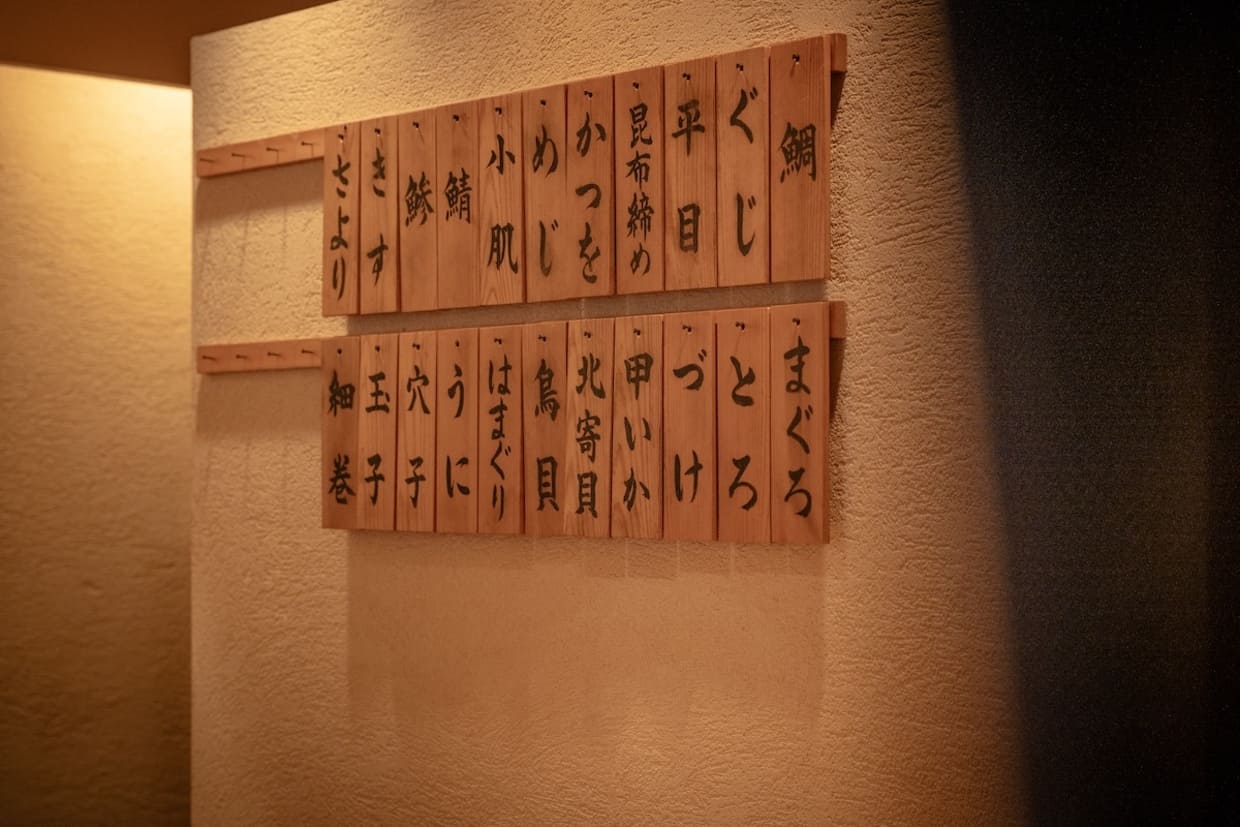 鯛
ぐじ
平目
昆布締め
かつを
めじ
小肌
鯖
鯵
きす
さより
まぐろ
とろ
づけ
甲いか
北寄貝
鳥貝
はまぐり
うに
穴子
玉子
細巻